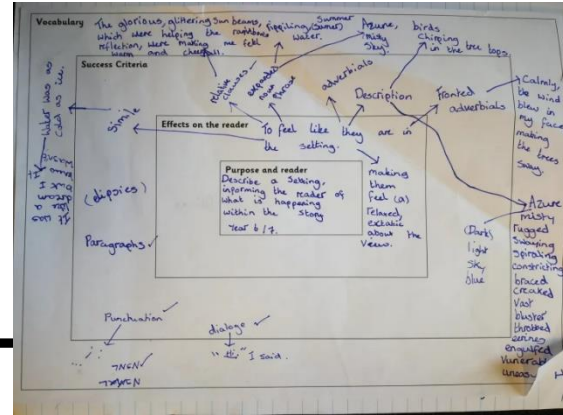 Vocabulary
The glorious, glittering sun beams,
which were helping the rainbows
reflection, were making me feel
warm and cheerful.
rippiling
water.
Summer
(sumer)
Azure,
misty
sky.
birds
chirping
in the tree tops.
Success Criteria
relative
clauses
expanded
noun
phrase
adverbials
Description
fronted
adverbials
Calmly,
the wind
blew in
my face
making
the trees
sway.
simile
Water was as
cold as ice.
Effects on the reader
To feel like they are in
the setting.
making
them
feel (a)
relaxed,
extatic
about the
views.
Purpose and reader
Describe a setting,
informing the reader of
what is happening
within the story
Year 6/7.
(elipsies)
Paragraphs ✓
Punctuation ✓
dialoge ✓
I said.
(Dark)
light
sky
blue
Azure
misty
rugged
swaying
spiraling
constricting
braced
creaked
vast
bluster
throbbed
engulfed